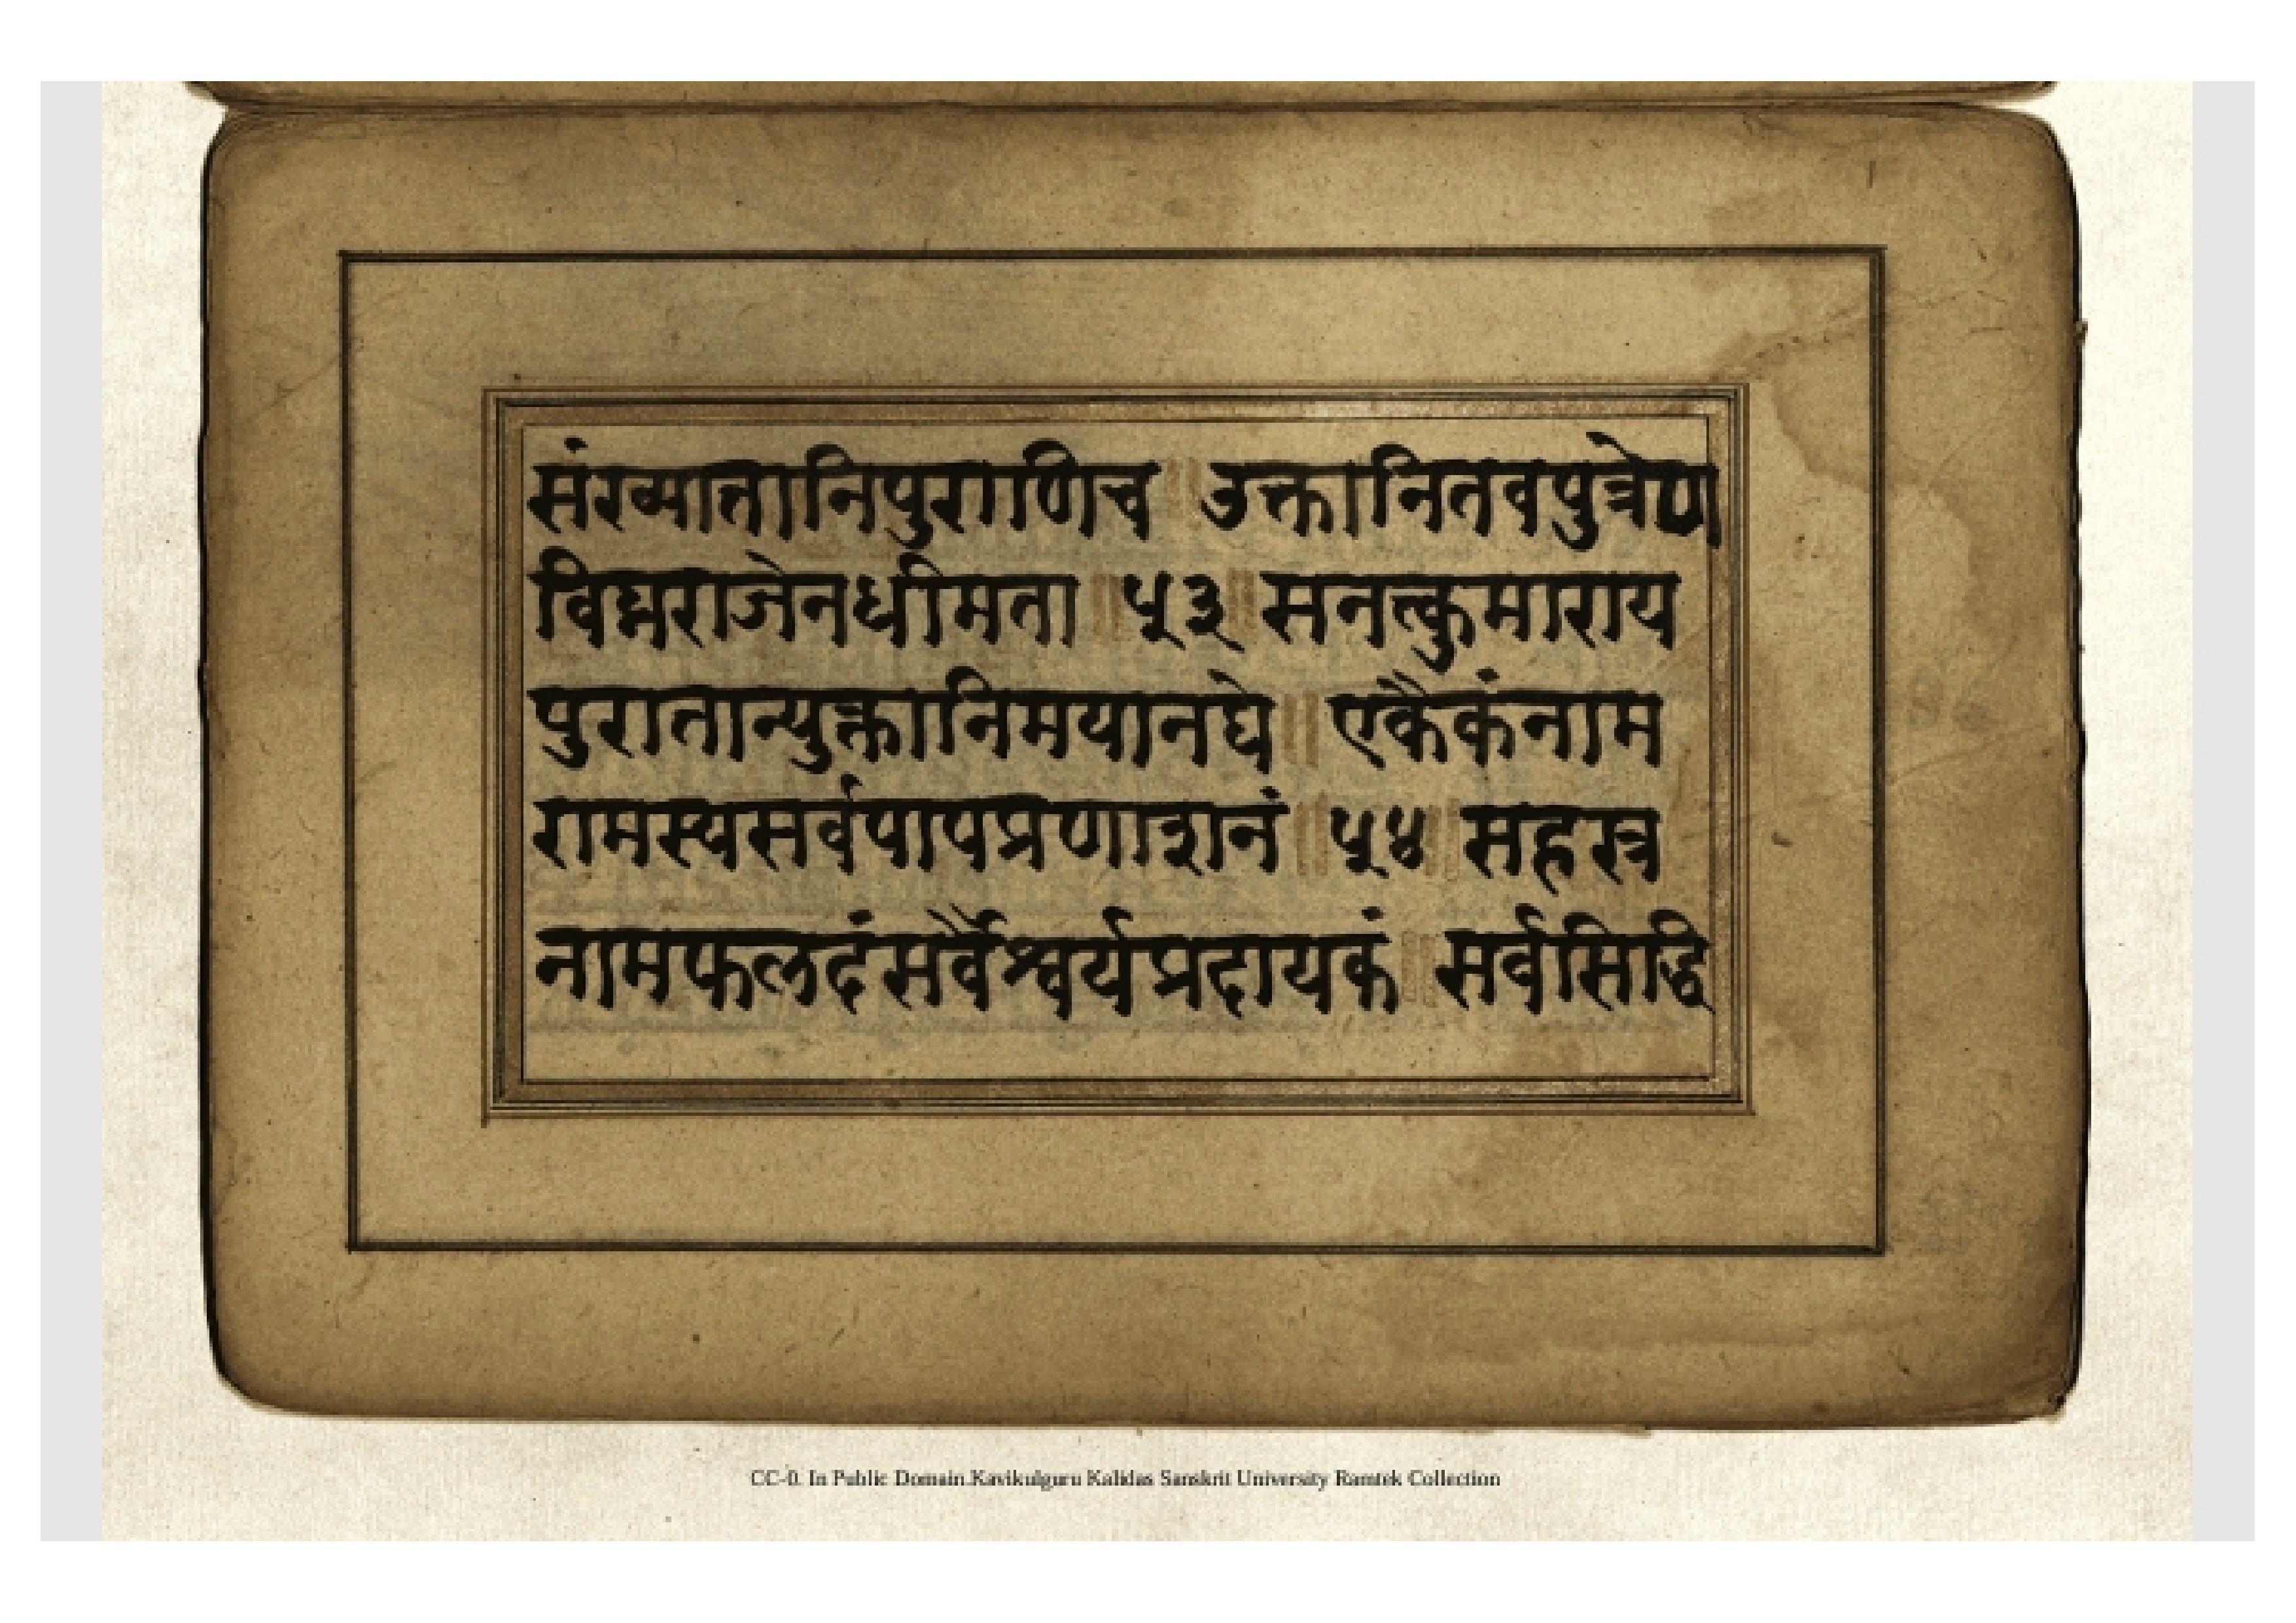 संख्यात्तानिपुराणिच ॥ उक्तानितवपुत्रेण
विघ्नराजेनधीमता ॥ ५३ ॥ सनत्कुमाराय
पुरातान्युक्तानिमयानघे ॥ एकैकंनाम
रामस्यसर्वपापप्रणाशनं ॥ ५४ ॥ सहस्त्र
नामफलदंसर्वैश्वर्यप्रदायकं ॥ सर्वसिद्धि
CC-0. In Public Domain.Kavikulguru Kalidas Sanskrit University Ramtek Collection